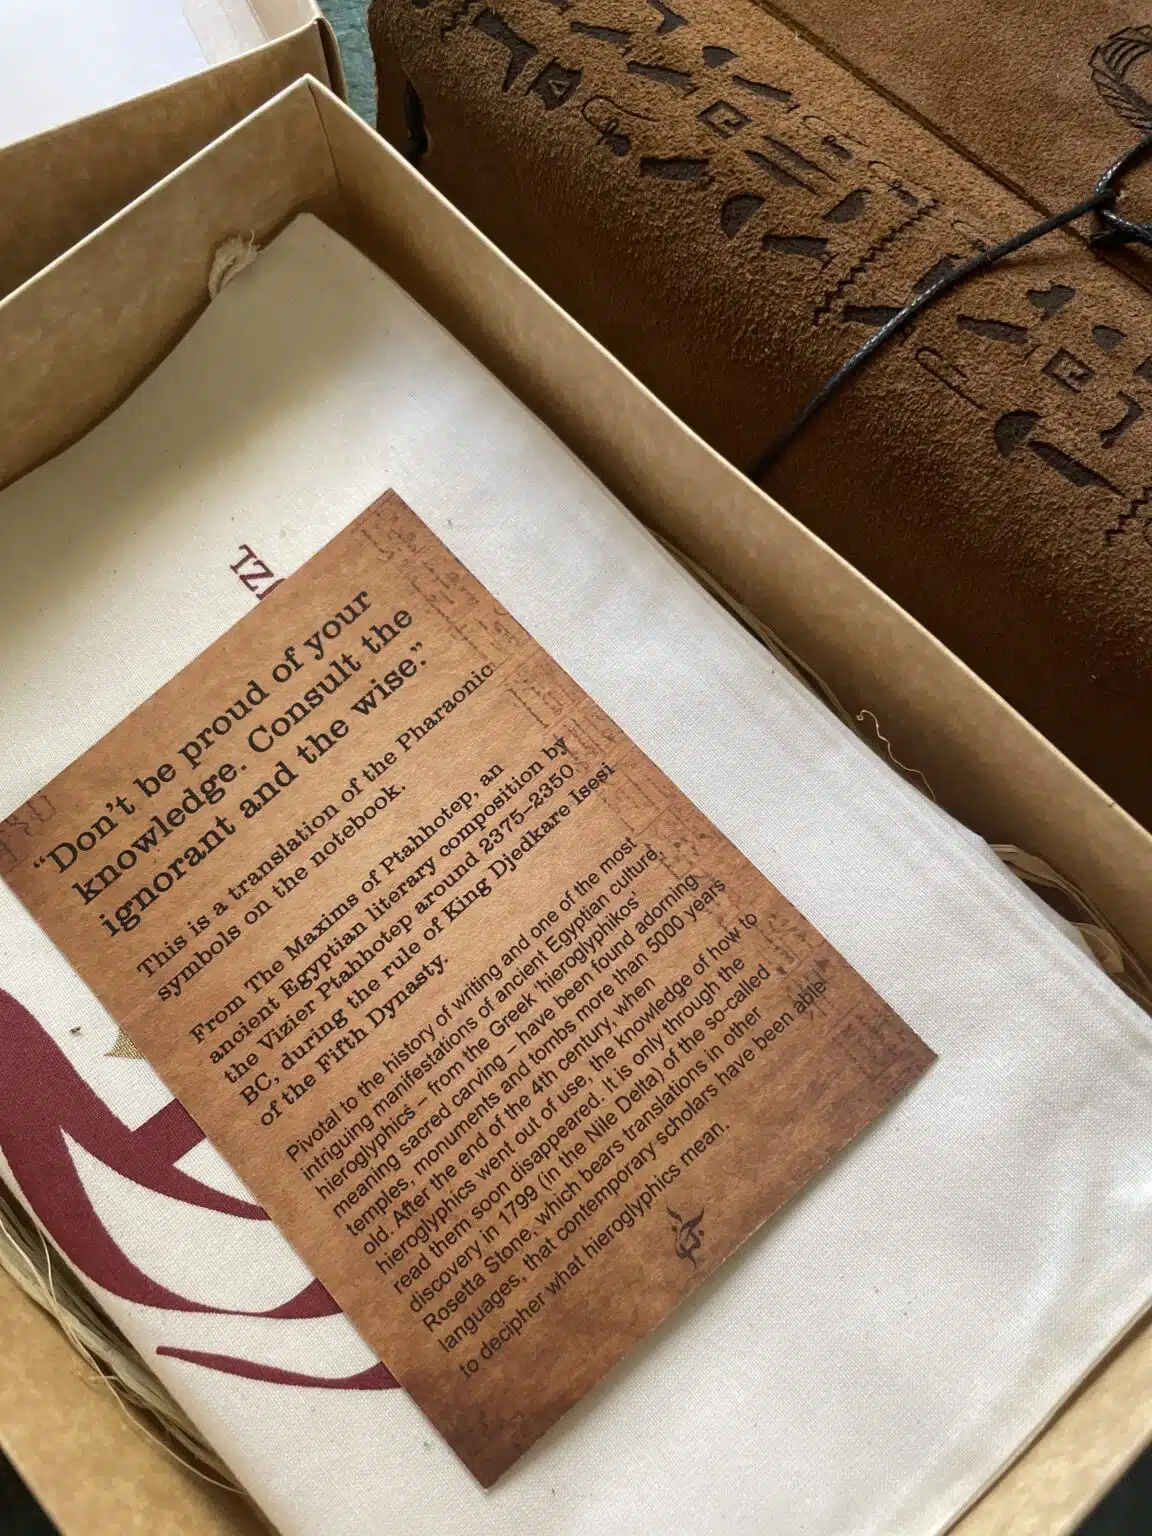 “Don’t be proud of your
knowledge. Consult the
ignorant and the wise.”
This is a translation of the Pharaonic
symbols on the notebook.
From The Maxims of Ptahhotep, an
ancient Egyptian literary composition by
the Vizier Ptahhotep around 2375–2350
BC, during the rule of King Djedkare Isesi
of the Fifth Dynasty.
Pivotal to the history of writing and one of the most
intriguing manifestations of ancient Egyptian culture,
hieroglyphics – from the Greek ‘hieroglyphikos’
meaning sacred carving – have been found adorning
temples, monuments and tombs more than 5000 years
old. After the end of the 4th century, when
hieroglyphics went out of use, the knowledge of how to
read them soon disappeared. It is only through the
discovery in 1799 (in the Nile Delta) of the so-called
Rosetta Stone, which bears translations in other
languages, that contemporary scholars have been able
to decipher what hieroglyphics mean.